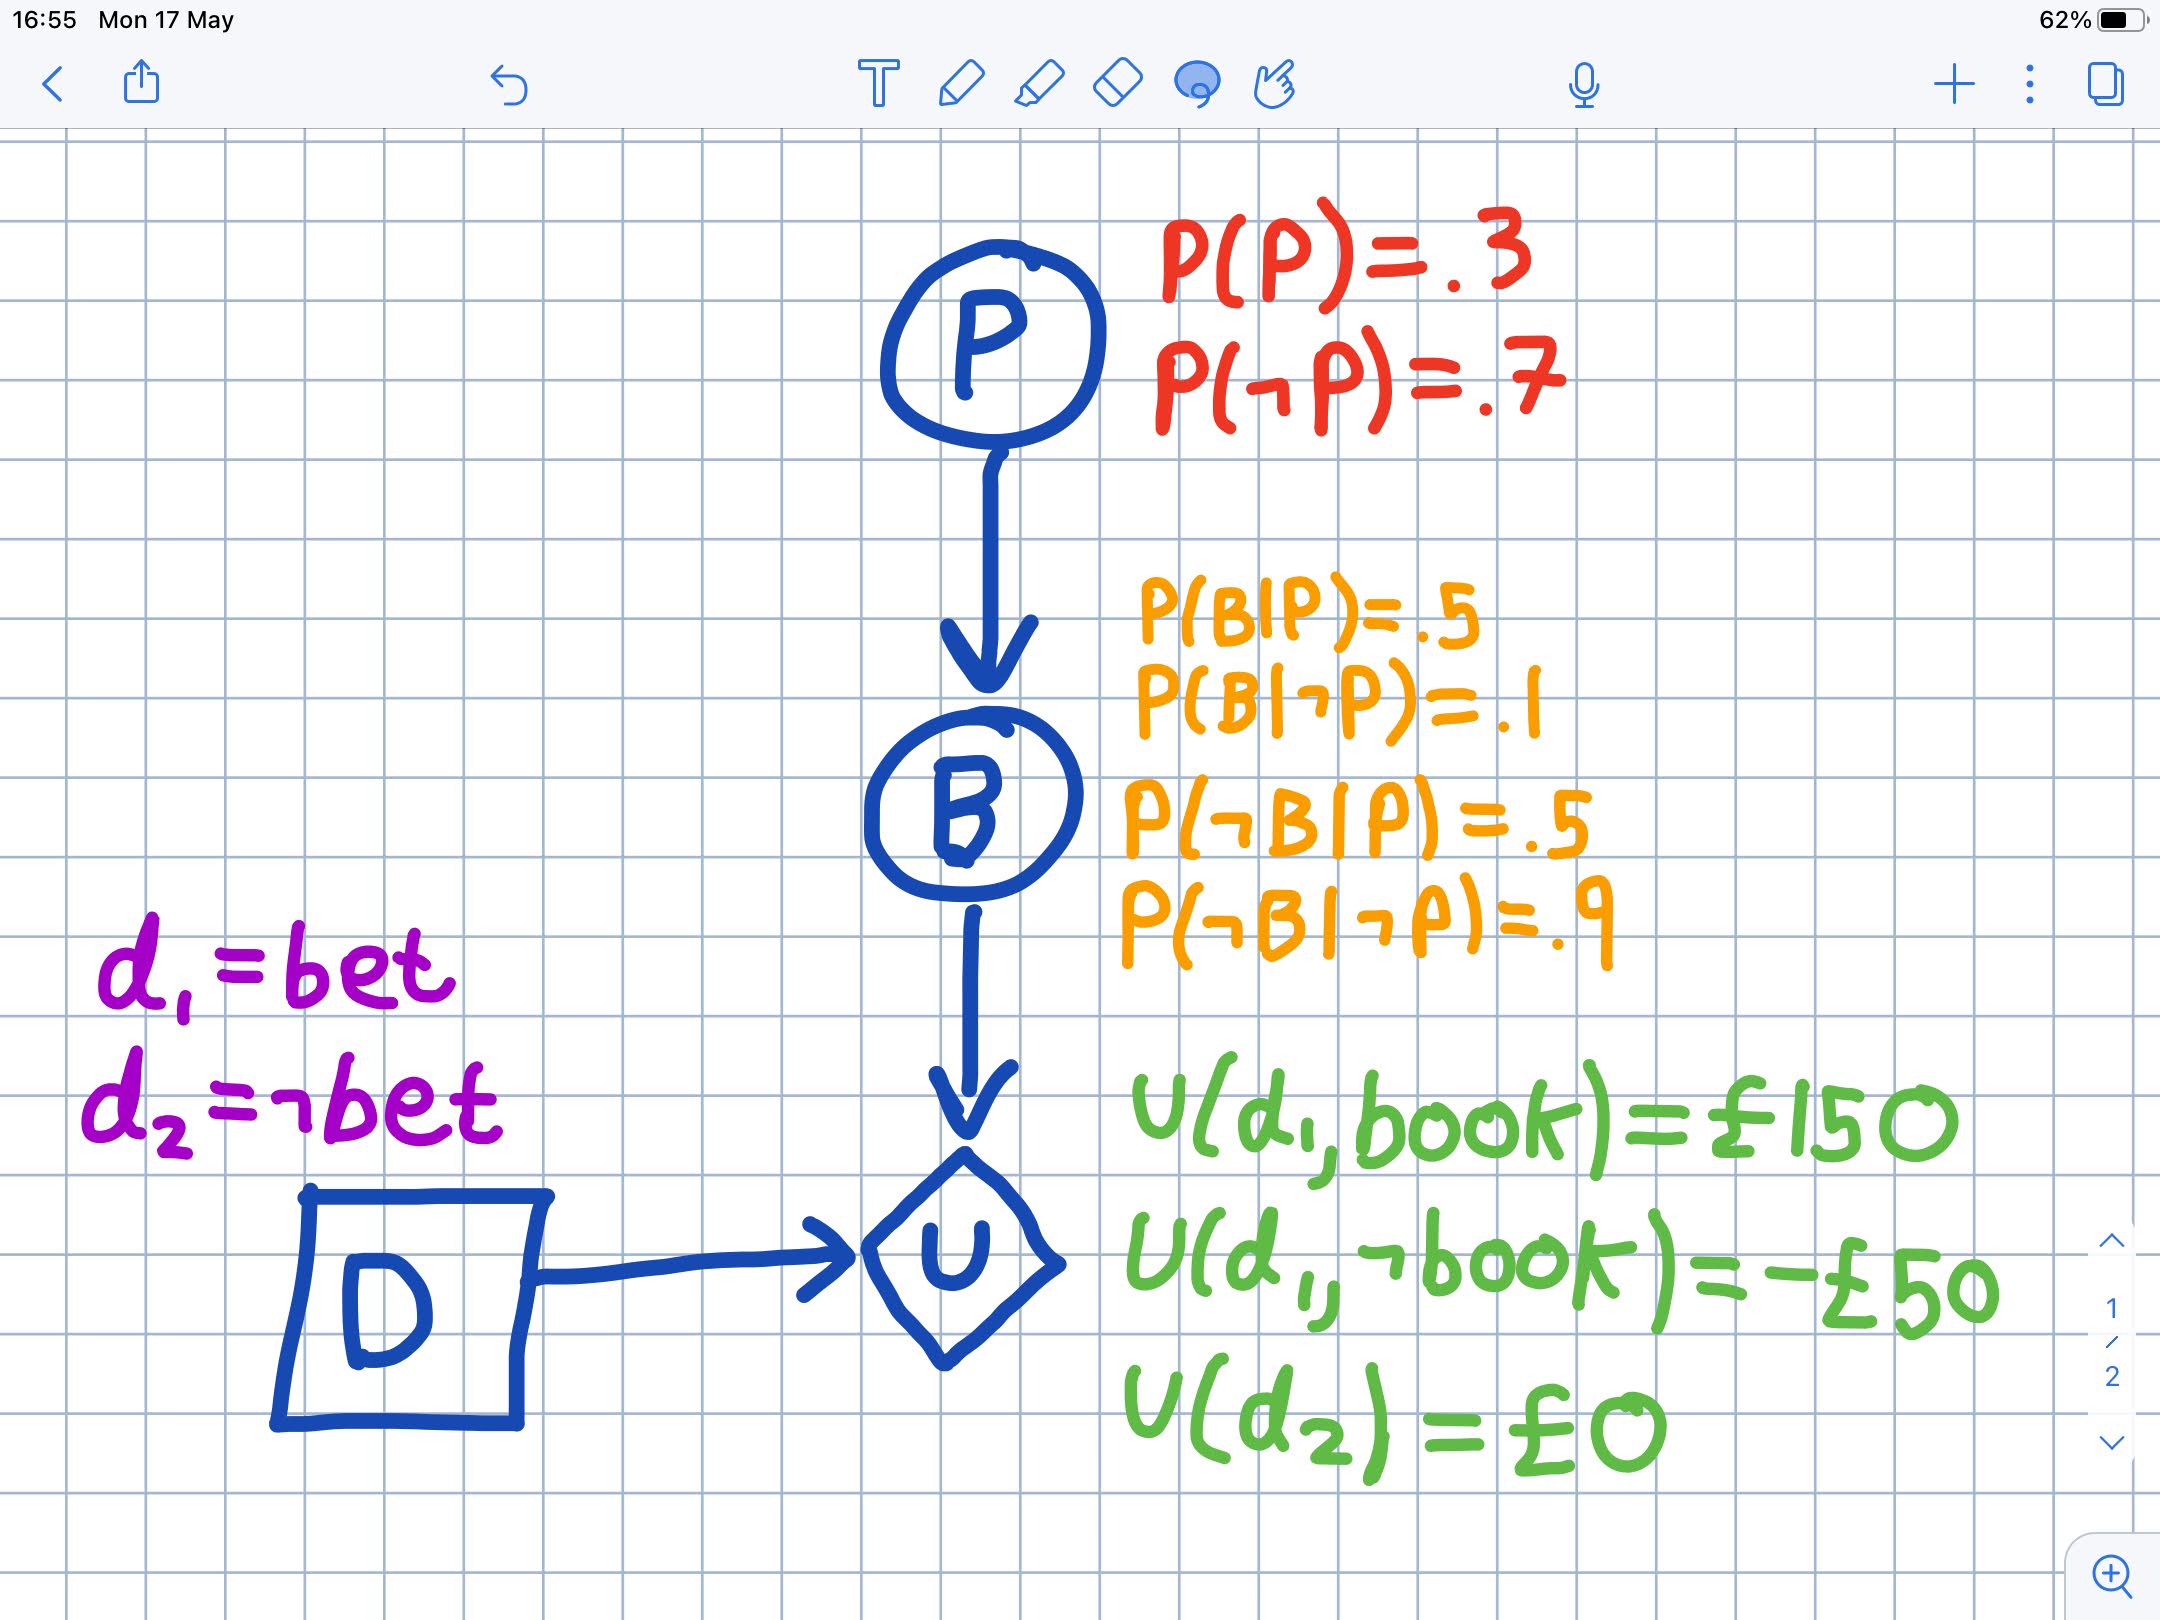 16:55 Mon 17 May
62%
T
P
P(P)=.3
P(¬P)=.7
P(B|P)=.5
P(B|¬P)=.1
B
P(¬B|P)=.5
P(¬B|¬P)=.9
d₁=bet
d₂=¬bet
D
U
U(d₁,book)=£150
U(d₁,¬book)=-£50
U(d₂)=£0
1
/
2